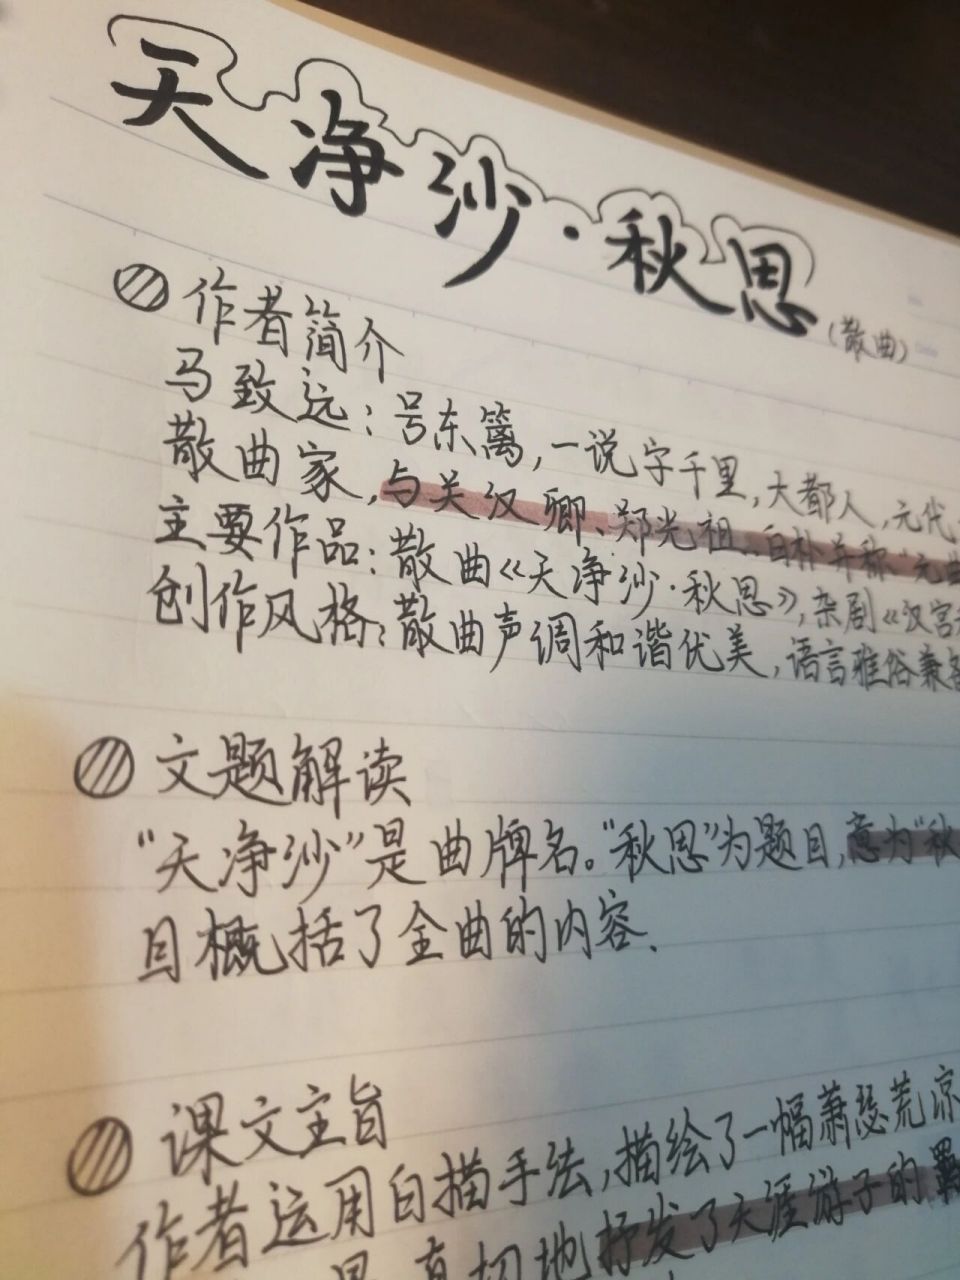 天净沙·秋思
(散曲)
作者简介
马致远:号东篱,一说字千里,大都人,元代
散曲家,与关汉卿、郑光祖、白朴并称"元曲
主要作品:散曲《天净沙·秋思》,杂剧《汉宫
创作风格:散曲声调和谐优美,语言雅俗兼备
文题解读
"天净沙"是曲牌名。"秋思"为题目,意为"秋
目概括了全曲的内容.
课文主旨
作者运用白描手法,描绘了一幅萧瑟荒凉
真切地抒发了天涯游子的